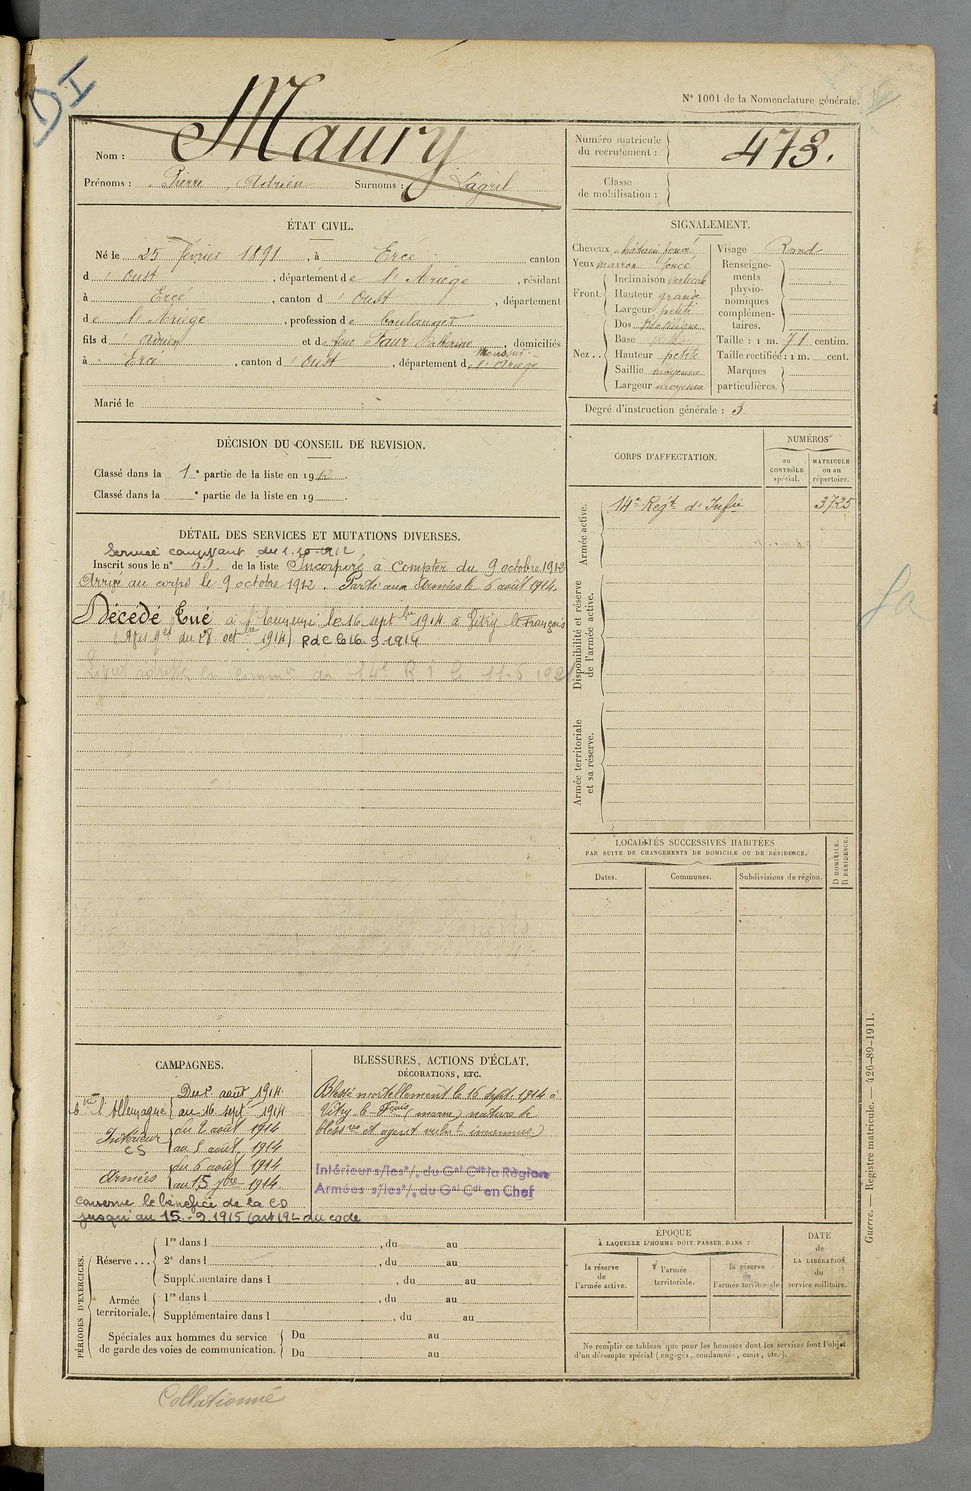 DI
N° 1001 de la Nomenclature générale.
Nom : Maury
Prénoms : Pierre Adrien Surnoms : Lagril
Numéro matricule du recrutement : 473.
Classe de mobilisation :
ÉTAT CIVIL.
Né le 25 février 1891, à Ercé canton
d'Oust, département de l'Ariège, résidant
à Ercé, canton d'Oust, département
de l'Ariège, profession de boulanger
fils d'Adrien et de feue Faur Catherine, domiciliés
à Ercé, canton d'Oust, département de l'Ariège
Marié le
SIGNALEMENT.
Cheveux châtain foncé
Yeux marron foncé
Front.
Inclinaison verticale
Hauteur grande
Largeur petite
Nez
Dos rectiligne
Base
Hauteur petite
Saillie moyenne
Largeur moyenne
Visage Rond
Renseignements physionomiques complémentaires.
Taille : 1 m. 71 centim.
Taille rectifiée : 1 m. cent.
Marques particulières.
Degré d'instruction générale : 3
DÉCISION DU CONSEIL DE REVISION.
Classé dans la 1e partie de la liste en 1912.
Classé dans la e partie de la liste en 19
CORPS D'AFFECTATION.
NUMÉROS
au CONTRÔLE spécial.
MATRICULE ou au répertoire.
Armée active.
14e Régt d'Infie 3725
Disponibilité et réserve de l'armée active.
Armée territoriale et sa réserve.
DÉTAIL DES SERVICES ET MUTATIONS DIVERSES.
Service comptant du 1.10.1912
Inscrit sous le n° de la liste Incorporé à compter du 9 octobre 1912
Arrivé au corps le 9 octobre 1912. Parti aux Armées le 6 août 1914.
Décédé Tué à l'ennemi le 16 septbre 1914 à Vitry le François
du 28 octbre 1914) Rdc le 16.9.1914
du 14e R I le 11-6
LOCALITÉS SUCCESSIVES HABITÉES
PAR SUITE DE CHANGEMENTS DE DOMICILE OU DE RÉSIDENCE.
Dates.
Communes.
Subdivisions de région.
D DOMICILE.
R RÉSIDENCE.
CAMPAGNES.
Du 2 août 1914
Cte l'Allemagne au 16 sept 1914
Intérieur CS
du 2 août 1914
au 5 août 1914
Armées
du 6 août 1914
au 15 7bre 1914
conserve le bénéfice de la CD
jusqu'au 15-9 1915 (art 192 du code
BLESSURES, ACTIONS D'ÉCLAT,
DÉCORATIONS, ETC.
Blessé mortellement le 16 sept. 1914 à
Vitry le Fçois (marne) nature de
blessres et agent vulnt inconnus)
Intérieur s/les o/. du Gal Cdt la Région
Armées s/les o/. du Gal Cdt en Chef
PÉRIODES D'EXERCICES.
Réserve...
1re dans l , du au
2e dans l , du au
Supplémentaire dans l , du au
Armée territoriale.
1re dans l , du au
Supplémentaire dans l , du au
Spéciales aux hommes du service de garde des voies de communication.
Du au
Du au
ÉPOQUE
À LAQUELLE L'HOMME DOIT PASSER DANS :
la réserve de l'armée active.
l'armée territoriale.
la réserve de l'armée territoriale
DATE de LA LIBÉRATION du service militaire.
Ne remplir ce tableau que pour les hommes dont les services font l'objet
d'un décompte spécial (engagés, condamnés, omis, etc.).
Guerre. — Registre matricule. — 426-89-1911.
Collationné